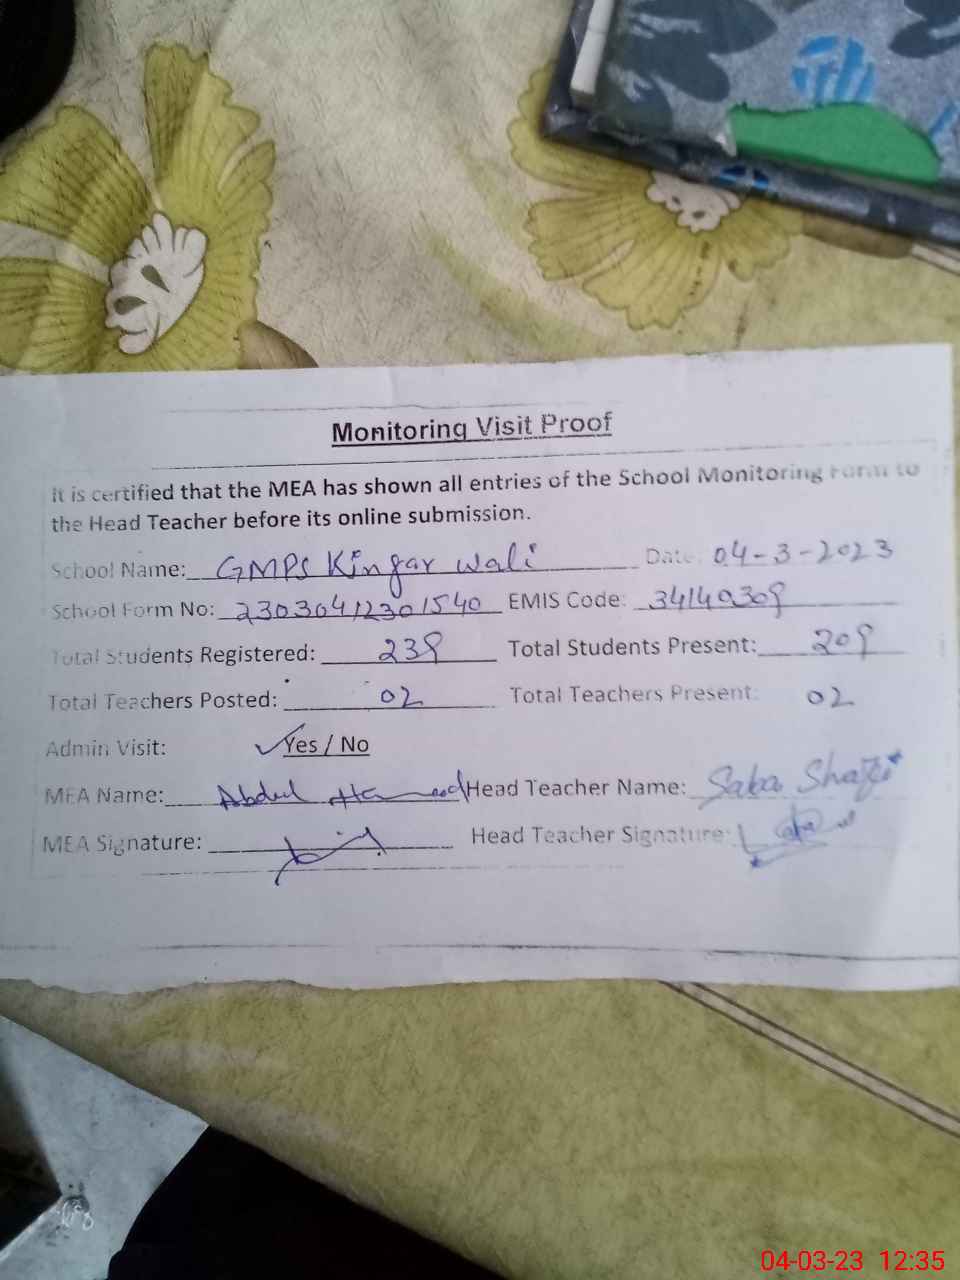 Monitoring Visit Proof
It is certified that the MEA has shown all entries of the School Monitoring Form to
the Head Teacher before its online submission.
School Name: GMPS Kingar Wali Date: 04-3-2023
School Form No: 23030412301540 EMIS Code: 34140309
Total Students Registered: 239 Total Students Present: 209
Total Teachers Posted: 02 Total Teachers Present: 02
Admin Visit: ✓Yes / No
MEA Name: Abdul Hameed Head Teacher Name: Saba Shafi
MEA Signature: Head Teacher Signature:
04-03-23 12:35